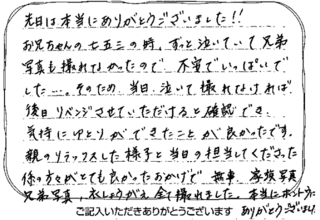 先日は本当にありがとうございました!!
お兄ちゃんの七五三の時、ずっと泣いていて兄弟
写真も撮れなかったので不安でいっぱいで
した…。そのため、当日、泣いて撮れなければ
後日リベンジさせていただけると確認でき、
気持にゆとりができたことが良かったです。
親のリラックスした様子と当日の担当してくださった
係の方々がとても良かったおかげで無事、家族写真
兄弟写真、衣しょうがえ全て撮れました。本当にホントに
ありがとうございました
ご記入いただきありがとうございます